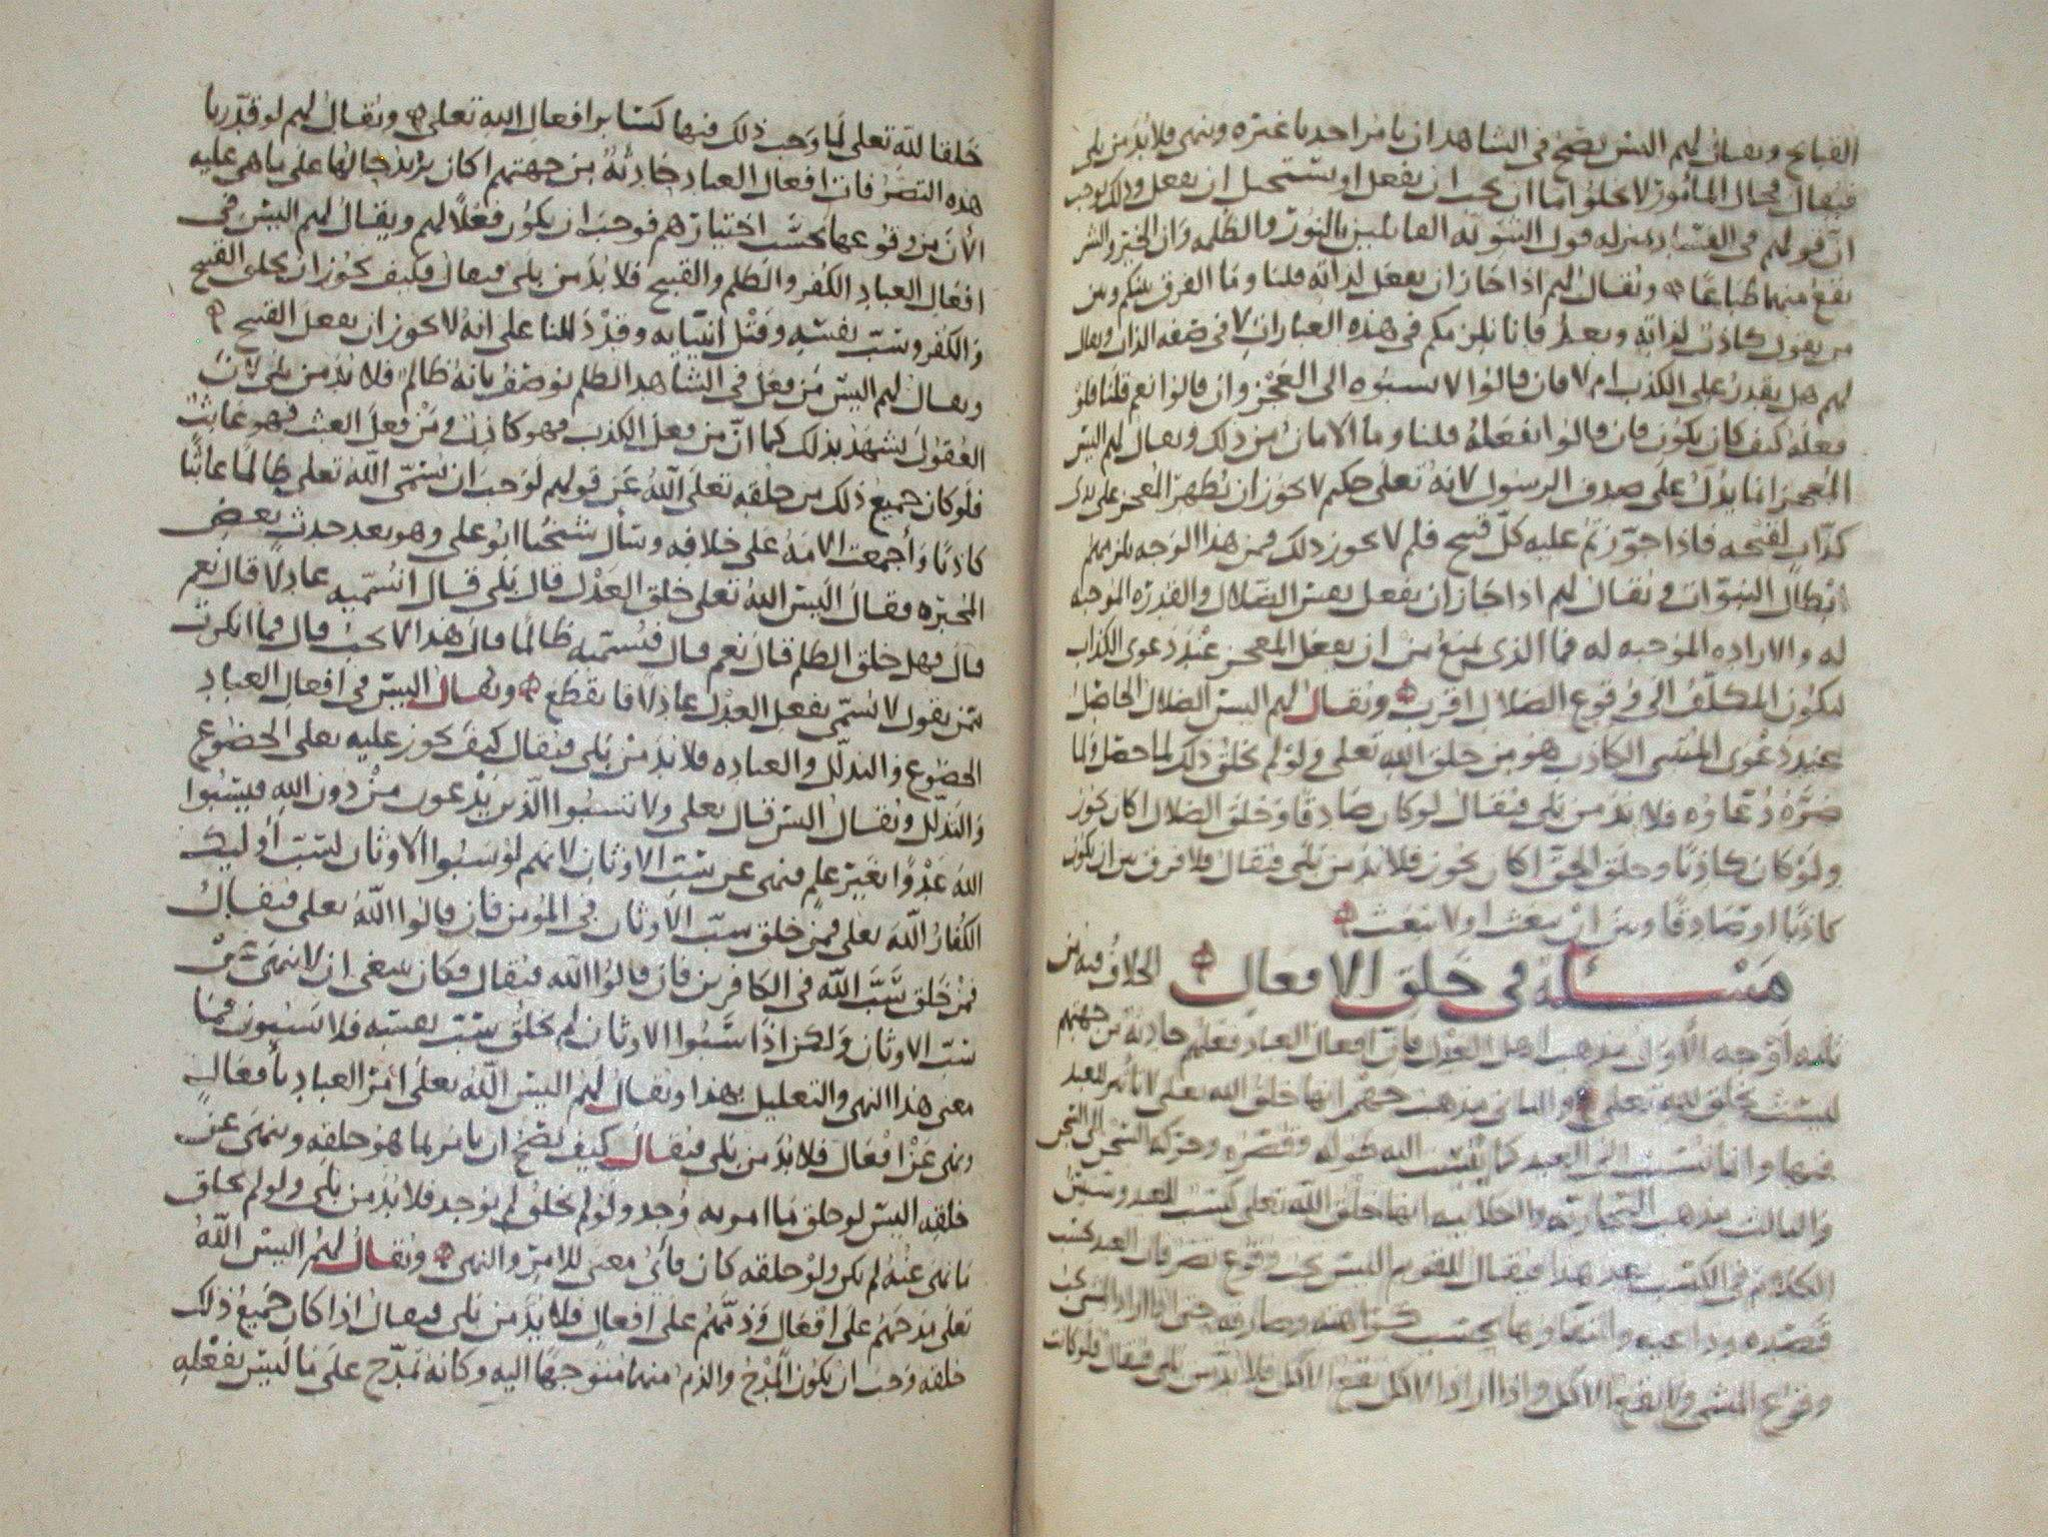 القبايح ويقال لهم اليس يصح في الشاهد ان يامر احدنا غيره وينهى فلا بد من بلى
فيقال فحال المأمور لا يخلوا اما ان يجب ان يفعل او يستحيل ان يفعل وذلك يوجب
انّ قولهم في الفساد بمنزله قول الثنويّه القائلين بالنور والظلمه وان الخير والشر
يقع منهما طباعًا ويقال لهم اذا جاز ان يفعل لذاته قلنا وما الفرق بينكم وبين
من يقول كاذب لذاته وبعد فانا نلزمكم في هذه العبارات لا في صفه الذات ويقال
لهم هل يقدر على الكذب ام لا فان قالوا لا نسبوه الى العجز وان قالوا نعم قلنا فلو
فعله كيف كان يكون فان قالوا نفعله قلنا وما الامان من ذلك ويقال لهم اليس
المعجز انما يدل على صدق الرسول لانه تعلى حكيم لا يجوز ان يظهر المعجز على يدي
كذّاب لقبحه فاذا جوّزتم عليه كلّ قبيح فلم لا يجوز ذلك فمن هذا الوجه يلزمهم
ابطال النبوّات ويقال لهم اذا جاز ان يفعل نفس الضلال والقدره الموجبه
له والاراده الموجبه له فما الذي يمنع من ان يفعل المعجز عند دعوى الكذاب
ليكون المكلّف الى وقوع الضلال اقرب ويقال لهم اليس الضلال الحاصل
عند دعوى المتنبى الكاذب هو من خلق الله تعلى ولو لم يخلق ذلك لما حصل ولما
ضرّه دُعاؤه فلا بد من بلى فيقال لو كان صادقًا وخلق الضلال اكان يجوز
ولو كان كاذبًا وخلق الحق اكان يجوز فلا بد من بلى فيقال فلا فرق بين ان يكون
كاذبًا او صادقًا وبين ان يبعث او لا يبعث
مسئلة في خلق الافعال الخلاف فيه من
ثلثه اوجه الأوّل مذهب اهل العدل فانّ افعال العباد فعلهم حادثة من جهتهم
ليست بخلق لله تعلى والثاني مذهب جهم انها خلق الله تعلى لا تأثير للعبد
فيها وانما نُسبت الى العبد كما ينسب اليه طوله وقصره وحركه الشجر الى الشجر
والثالث مذهب النجّاريّه والكلابيه انها خلق الله تعلى كسب للعبد وسيبين
الكلام في الكسب بعد هذا فيقال للقوم اليس يجب وقوع تصرفات العبد بحسب
قصده ودواعيه وانتفاوها بحسب كراهته وصارفه حتى اذا اراد المشي يجب
وقوع المشي ولا يقع الاكل واذا اراد الاكل يقع الاكل فلا بد من بلى فيقال فلو كانت
خلقا لله تعلى لما وجب ذلك فيها كسائر افعال الله تعلى ويقال لهم لو قدّرنا
هذه التصرفات افعال العباد حادثة من جهتهم اكان يزيد حالها على ما هي عليه
الأن من وقوعها بحسب اختيارهم فوجب ان يكون فعلاً لهم ويقال لهم اليس في
افعال العباد الكفر والظلم والقبيح فلا بد من بلى فيقال فكيف يجوز ان يخلق القبيح
والكفر وسبّ نفسه وقتل انبيايه وقد دللنا على انه لا يجوز ان يفعل القبيح
ويقال لهم اليس من فعل في الشاهد الظلم يوصف بانه ظالم فلا بد من بلى لانّ
العقول تشهد بذلك كما انّ من فعل الكذب فهو كاذب ومن فعل العبث فهو عابث
فلو كان جميع ذلك من خلقه تعلى الله عن قولهم لوجب ان يسمّى الله تعلى ظالمًا عابثًا
كاذبًا وأجمعت الامة على خلافه وسأل شيخنا ابو على وهو بعد حدث بعض
المجبره فقال اليس الله تعلى خلق العدل قال بلى قال اتسمّيه عادلا قال نعم
قال فهل خلق الظلم قال نعم قال فتسميه ظالمًا قال هذا لا يجب قال فما انكرت
ممن يقول لا يسمّى بفعل العدل عادلا فانقطع ويقال اليس في افعال العباد
الخضوع والتذلل والعباده فلا بد من بلى فيقال كيف يجوز عليه تعلى الخضوع
والتذلل ويقال اليس قال تعلى ولا تسبوا الذين يدعون من دون الله فيسبوا
الله عدوًا بغير علم فنهى عن سبّ الاوثان لانهم لو سبوا الاوثان لسبّ أوليك
الكفار الله تعلى فمن خلق سبّ الاوثان في المؤمن فان قالوا الله تعلى فيقال
فمن خلق سَبّ الله في الكافرين فان قالوا الله فيقال فكان ينبغي ان لا ينهى عن
سبّ الاوثان ولكن اذا سَبّوا الاوثان لم يخلق سبّ نفسه فلا يسبون فما
معنى هذا النهى والتعليل بهذا ويقال لهم اليس الله تعلى أمر العباد بأفعال
ونهى عن افعال فلا بد من بلى فيقال كيف يصح ان يامر بما هو خلقه وينهى عن
خلقه اليس لو خلق ما امر به وُجد ولو لم يخلق لم يوجد فلا بد من بلى ولو لم يخلق
ما نهى عنه لم يكن ولو خلقه كان فأيّ معنى للامر والنهى ويقال لهم اليس الله
تعلى مدحهم على افعال وذمّهم على افعال فلا بد من بلى فيقال اذا كان جميع ذلك
خلقه وجب ان يكون المدح والذم منهما متوجهًا اليه وكانه تمدّح على ما ليس بفعله